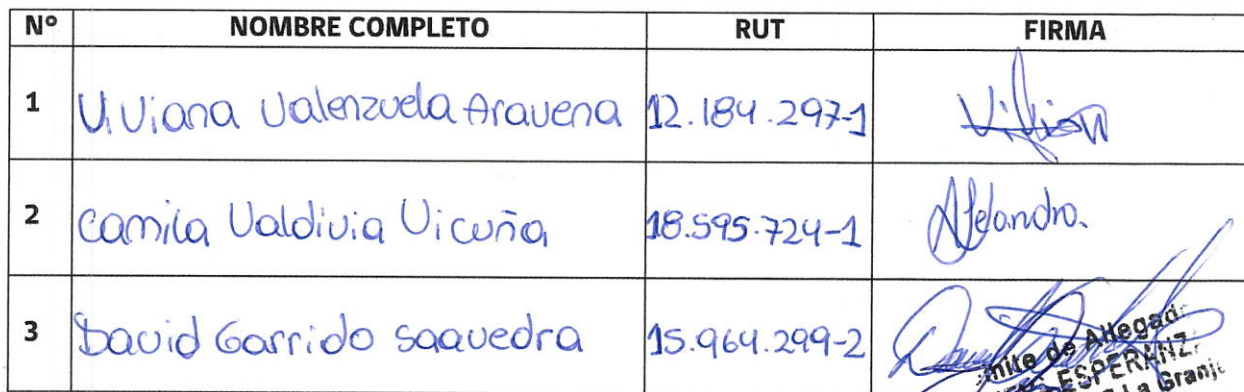 Nº NOMBRE COMPLETO RUT FIRMA
1 Viviana Valenzuela Aravena 12.184.297-1
2 Camila Valdivia Vicuña 18.595.724-1 Alejandra.
3 David Garrido Saavedra 15.964.299-2
de Allegad
ESPERANZ
La Granj